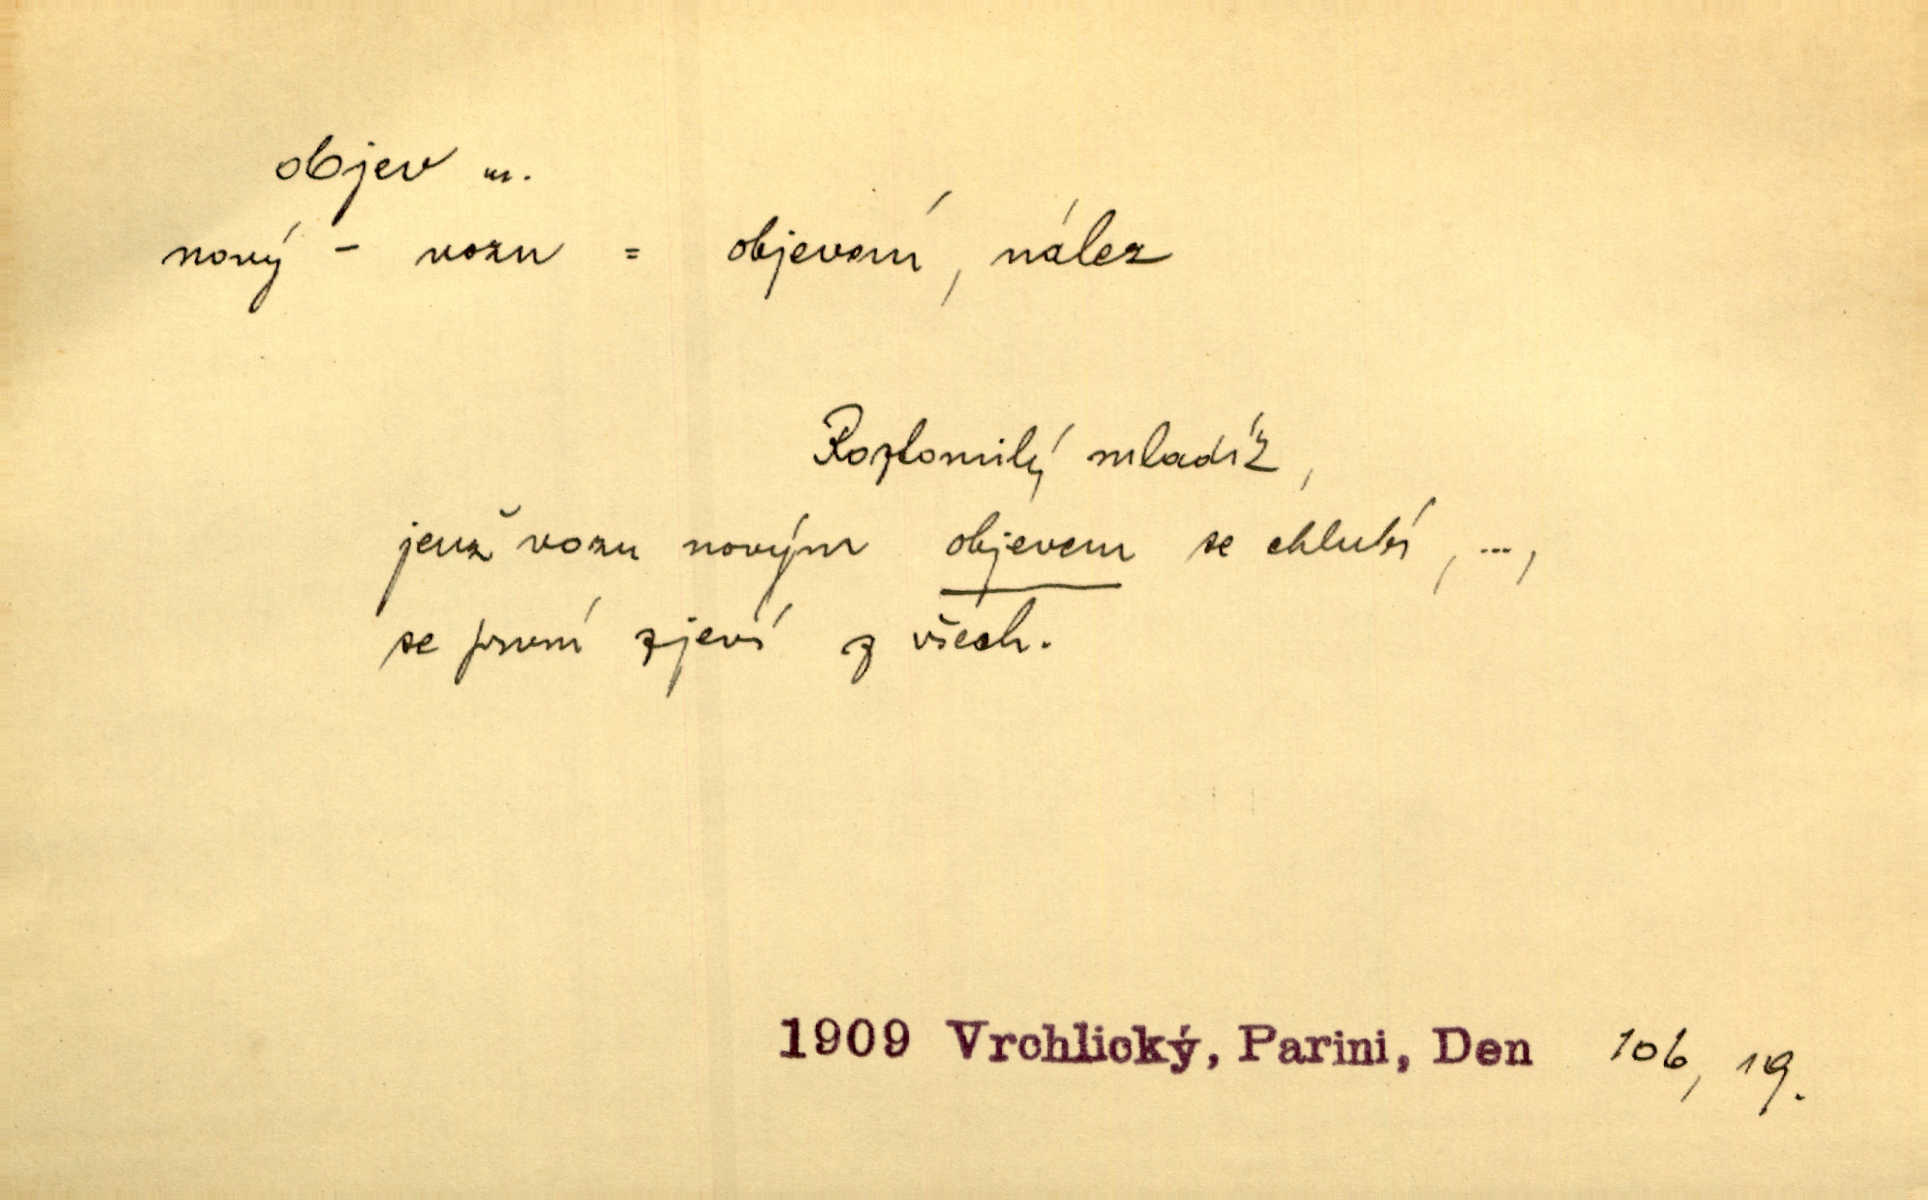 objev m.
nový – vozu = objevení, nález
Roztomilý mladík,
jenž vozu novým objevem se chlubí, ...,
se první zjeví z všech.
1909 Vrchlický, Parini, Den 106, 19.